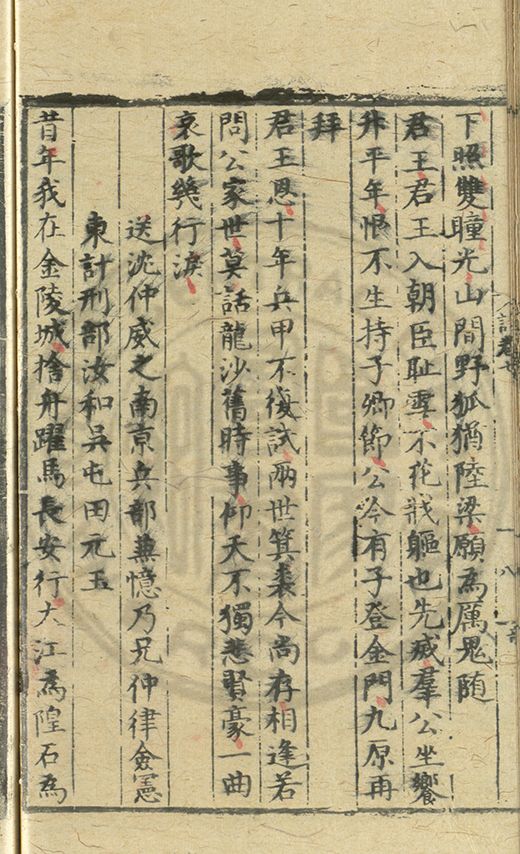 下照雙瞳光山間野狐猶陸梁願為厲鬼随
君王君王入朝臣耻雪不花戕軀也先臧羣公坐饗
升平年恨不生持子卿節公今有子登金門九原再
拜
君王恩十年兵甲不復試兩世箕裘今尚存相逢若
問公家世莫話龍沙舊時事仰天不獨悲賢豪一曲
哀歌幾行淚
送沈仲威之南京兵部兼憶乃兄仲律僉憲
東計刑部汝和吳屯田元玉
昔年我在金陵城捨舟躍馬長安行大江為隍石為
詩卷七
一八